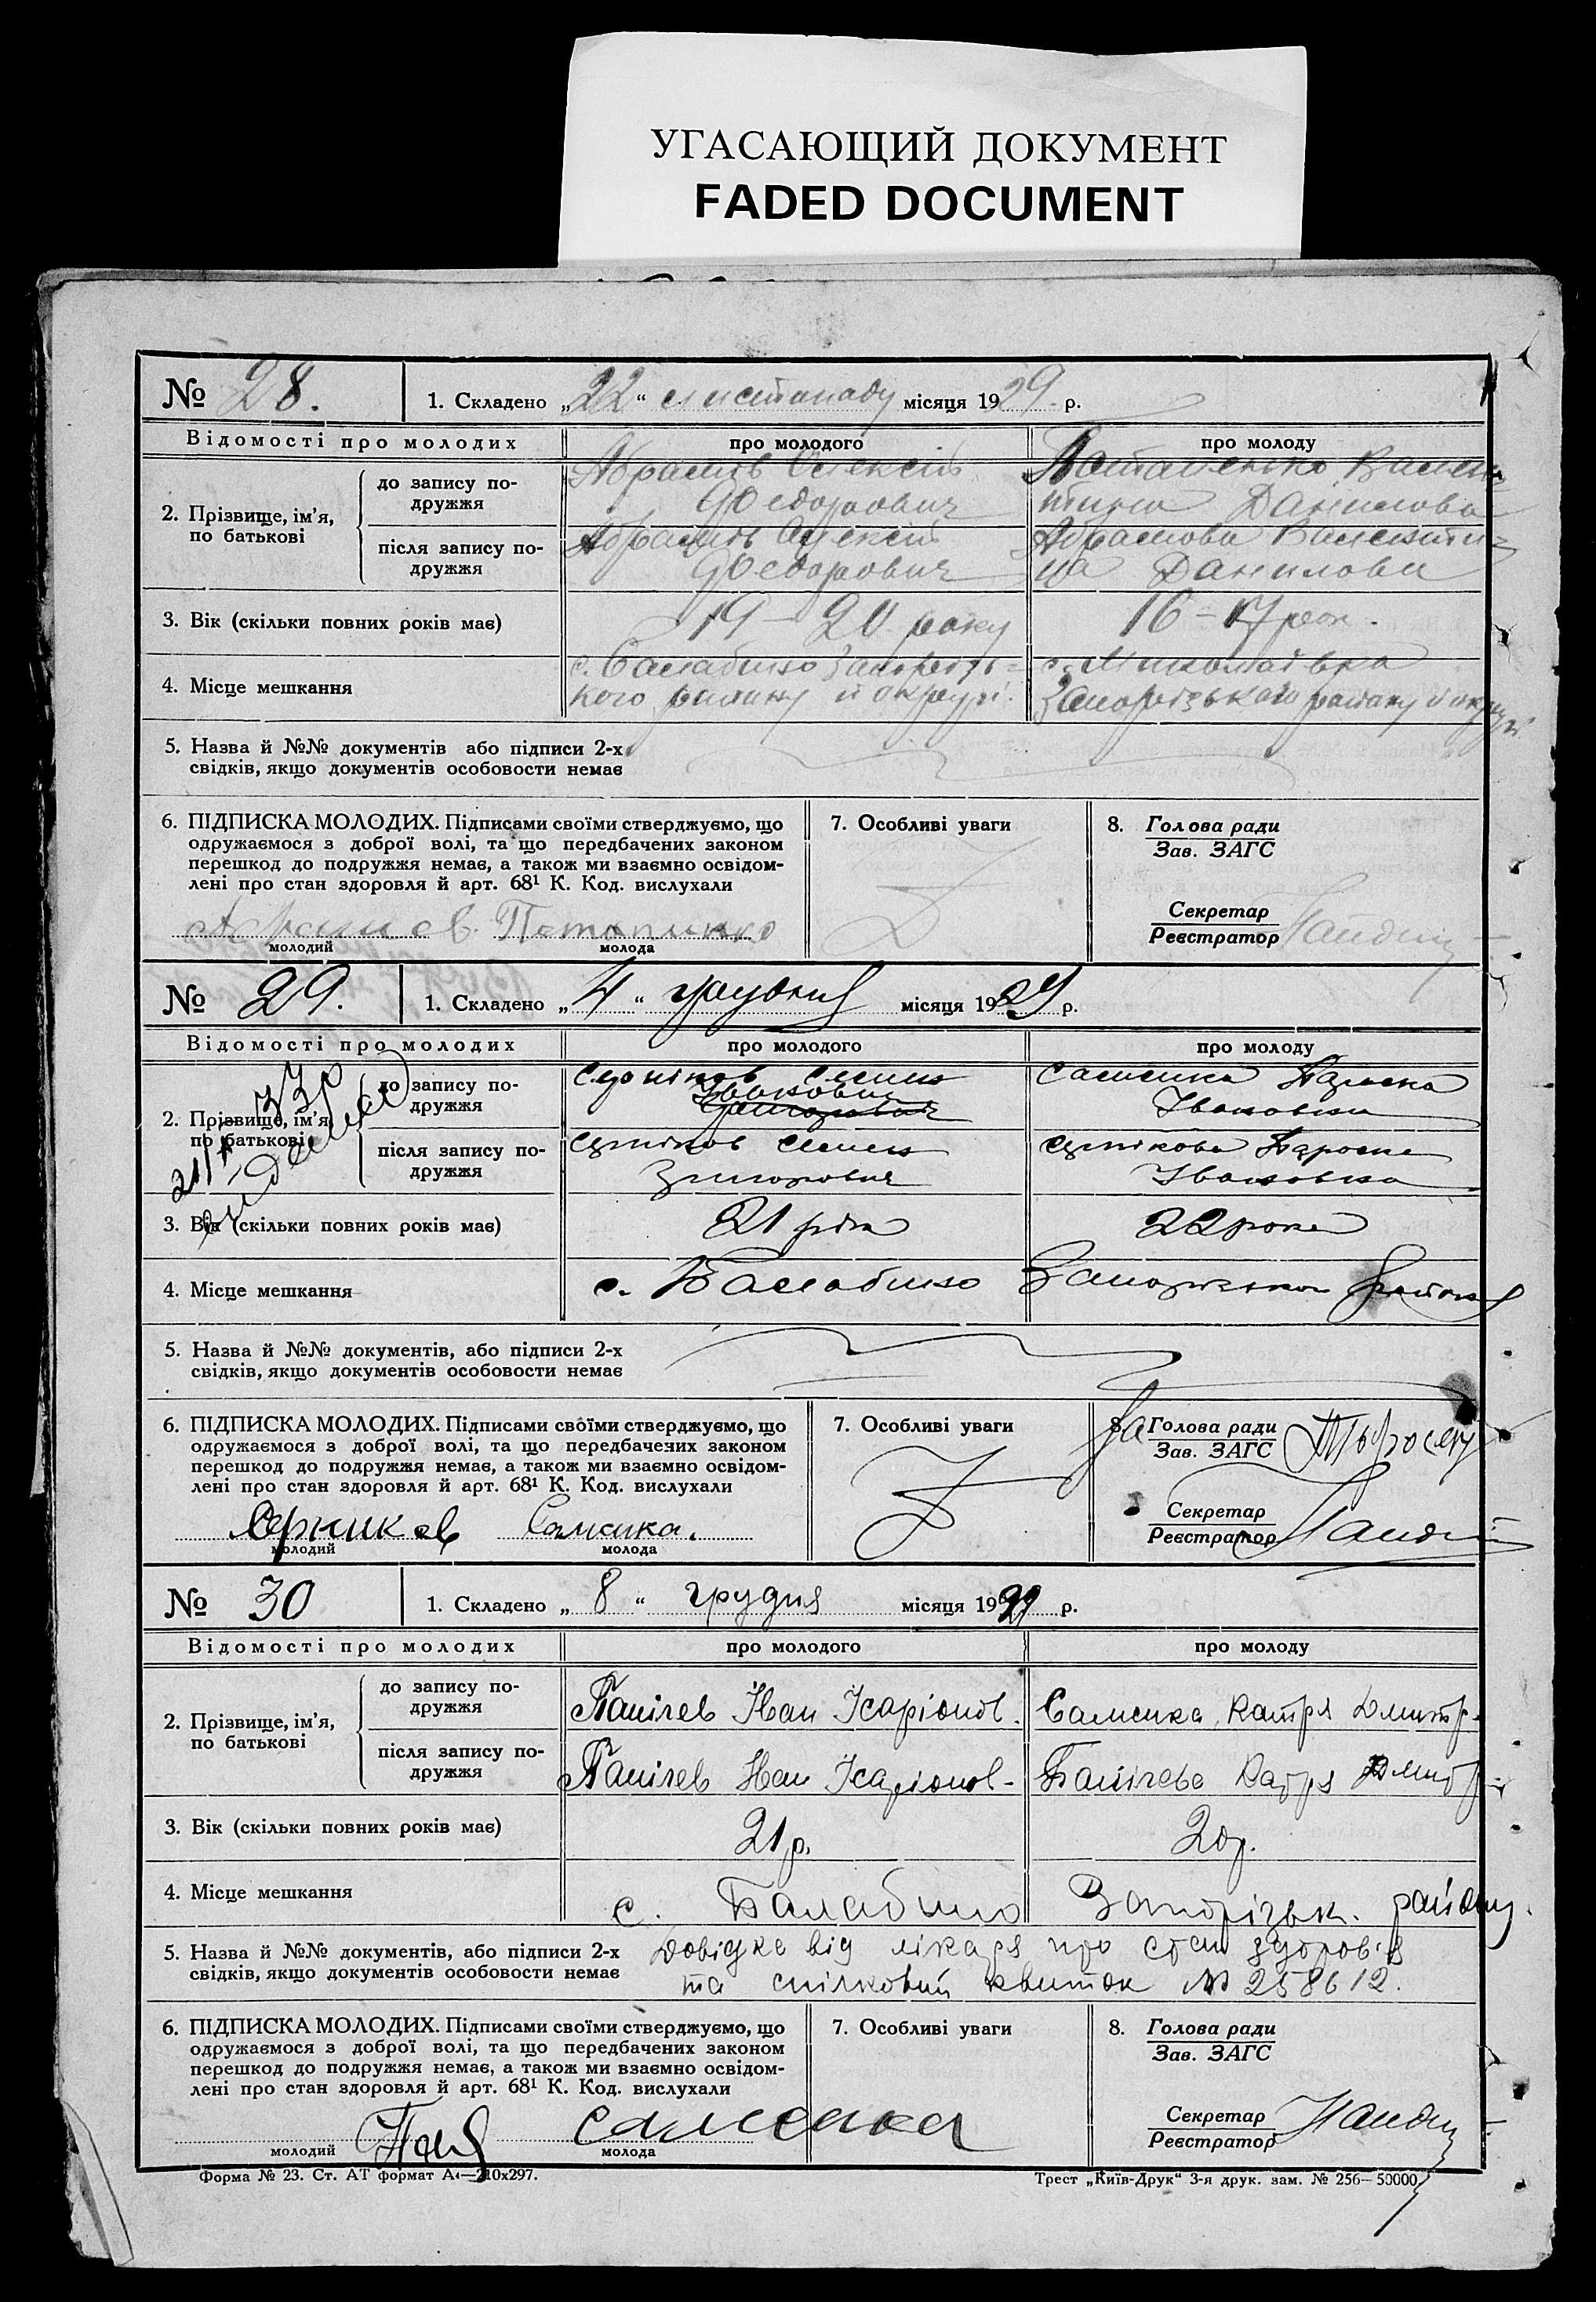 УГАСАЮЩИЙ ДОКУМЕНТ
FADED DOCUMENT
№ 28. 1. Складено „22“ листопаду місяця 1929 р.
Відомості про молодих про молодого про молоду
2. Прізвище, ім’я, по батькові
до запису подружжя
Абрамів Олексій
Федорович
Вален-
тина Данилова
після запису подружжя
Абрамів Олексій
Федорович
Абрамова Валенти-
на Данилова
3. Вік (скільки повних років має) 19 – 20 року 16 – 17 рок.
4. Місце мешкання
с. Балабино Запорізь-
кого району й округи.
с. Миколаївка
Запорізького району й округи
5. Назва й №№ документів або підписи 2-х
свідків, якщо документів особовости немає
6. ПІДПИСКА МОЛОДИХ. Підписами своїми стверджуємо, що
одружаємося з доброї волі, та що передбачених законом
перешкод до подружжя немає, а також ми взаємно освідом-
лені про стан здоровля й арт. 68¹ К. Код. вислухали
Абрамов. Потапинко
молодий молода
7. Особливі уваги
8. Голова ради
Зав. ЗАГС
Секретар
Реєстратор
№ 29. 1. Складено „4“ грудня місяця 1929 р.
Відомості про молодих про молодого про молоду
2. Прізвище, ім’я, по батькові
до запису подружжя
Семен
Іванович
Самсика Параска
Івановна
після запису подружжя
Семен
Григорович
Параска
Івановна
3. Вік (скільки повних років має) 21 рік 22 роки
4. Місце мешкання с. Балабино Запорізького району
5. Назва й №№ документів, або підписи 2-х
свідків, якщо документів особовости немає
6. ПІДПИСКА МОЛОДИХ. Підписами своїми стверджуємо, що
одружаємося з доброї волі, та що передбачених законом
перешкод до подружжя немає, а також ми взаємно освідом-
лені про стан здоровля й арт. 68¹ К. Код. вислухали
Самсика.
молодий молода
7. Особливі уваги
За
8. Голова ради
Зав. ЗАГС
Секретар
Реєстратор
№ 30 1. Складено „8“ грудня місяця 1929 р.
Відомості про молодих про молодого про молоду
2. Прізвище, ім’я, по батькові
до запису подружжя
Іван Ісаріонов.
Самсика Катря Дмитр.
після запису подружжя
Іван Ісаріонов-
Катря Дмитр-
3. Вік (скільки повних років має) 21 р. 20 р.
4. Місце мешкання с. Балабино Запорізьк. району.
5. Назва й №№ документів, або підписи 2-х
свідків, якщо документів особовости немає
Довідка від лікаря про стан здоров'я
та спілковий квиток № 258612.
6. ПІДПИСКА МОЛОДИХ. Підписами своїми стверджуємо, що
одружаємося з доброї волі, та що передбачених законом
перешкод до подружжя немає, а також ми взаємно освідом-
лені про стан здоровля й арт. 68¹ К. Код. вислухали
Самсика
молодий молода
7. Особливі уваги
8. Голова ради
Зав. ЗАГС
Секретар
Реєстратор
Форма № 23. Ст. АТ формат А₄—210х297. Трест „Київ-Друк“ 3-я друк. зам. № 256—50000.